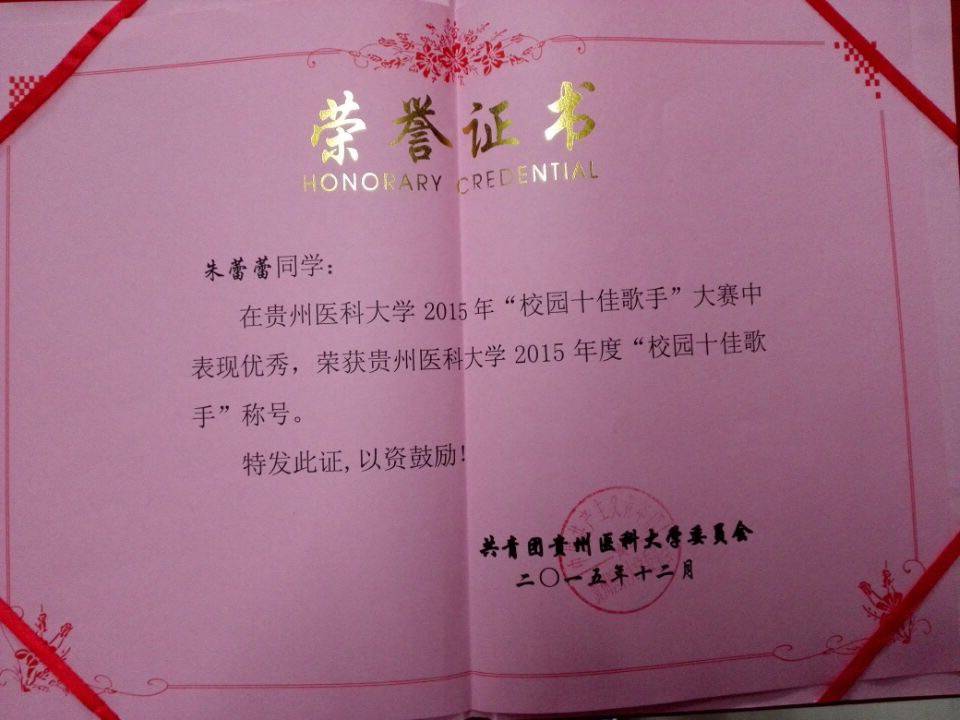 荣誉证书
HONORARY CREDENTIAL
朱蕾蕾同学：
在贵州医科大学2015年“校园十佳歌手”大赛中
表现优秀，荣获贵州医科大学2015年度“校园十佳歌
手”称号。
特发此证,以资鼓励!
共青团贵州医科大学委员会
二〇一五年十二月